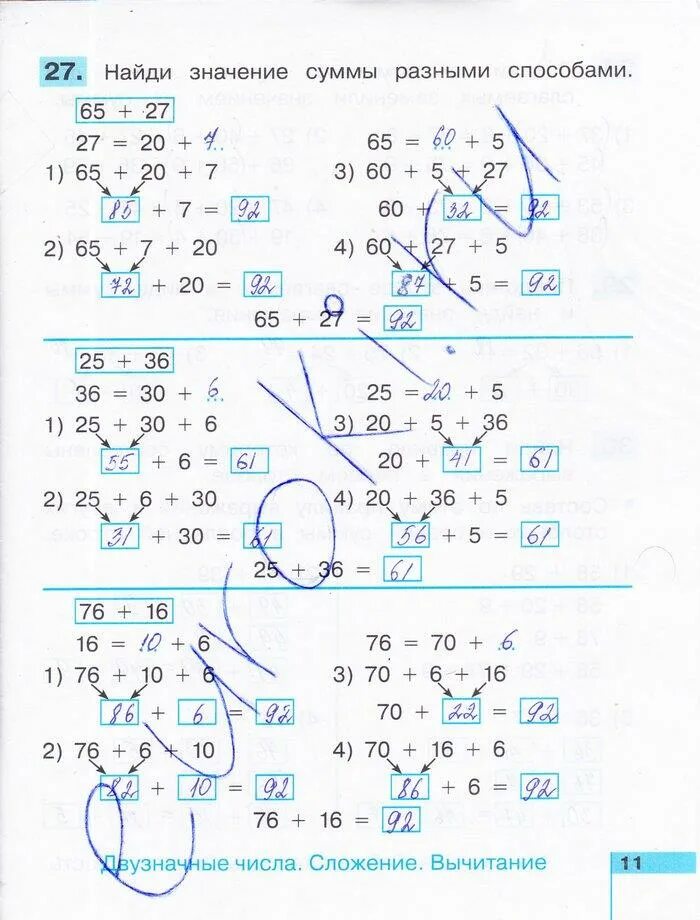 27. Найди значение суммы разными способами.
65 + 27
27 = 20 + 7
65 = 60 + 5
1) 65 + 20 + 7
85 + 7 = 92
3) 60 + 5 + 27
60 + 32 = 92
2) 65 + 7 + 20
72 + 20 = 92
4) 60 + 27 + 5
87 + 5 = 92
65 + 27 = 92
25 + 36
36 = 30 + 6
25 = 20 + 5
1) 25 + 30 + 6
55 + 6 = 61
3) 20 + 5 + 36
20 + 41 = 61
2) 25 + 6 + 30
31 + 30 = 61
4) 20 + 36 + 5
56 + 5 = 61
25 + 36 = 61
76 + 16
16 = 10 + 6
76 = 70 + 6
1) 76 + 10 + 6
86 + 6 = 92
3) 70 + 6 + 16
70 + 22 = 92
2) 76 + 6 + 10
82 + 10 = 92
4) 70 + 16 + 6
86 + 6 = 92
76 + 16 = 92
Двузначные числа. Сложение. Вычитание
11